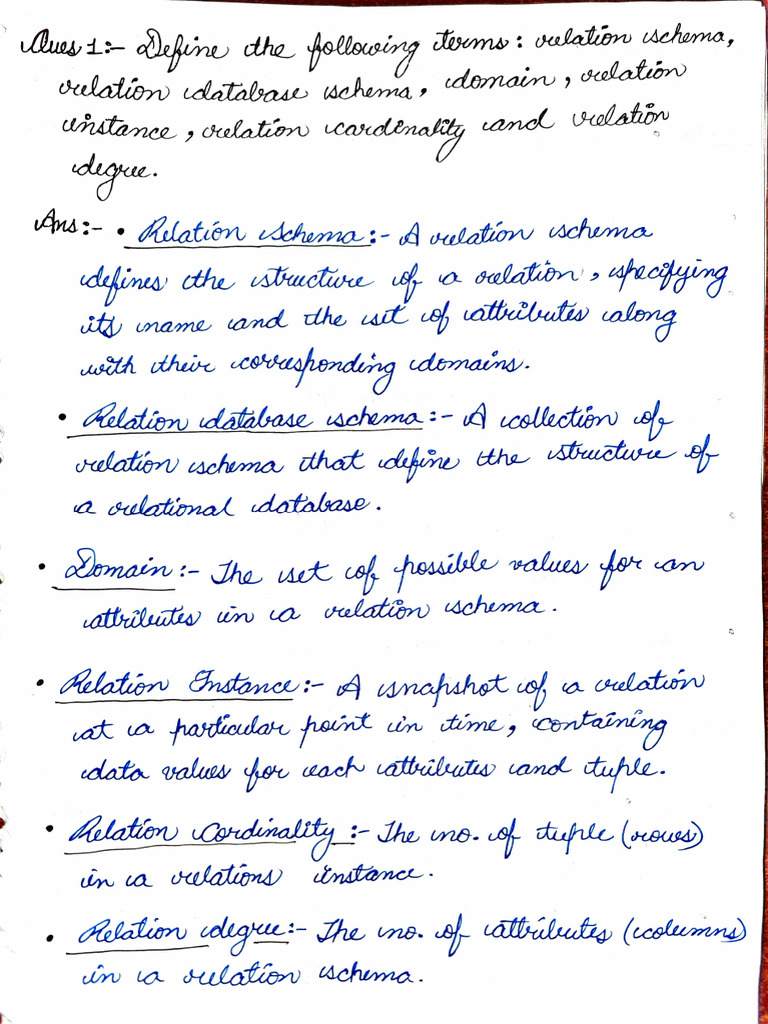 Ques 1:- Define the following terms: relation schema,
relation database schema, domain, relation
instance, relation cardinality and relation
degree.
Ans:- • Relation Schema:- A relation schema
defines the structure of a relation, specifying
its name and the set of attributes along
with their corresponding domains.
• Relation database schema:- A collection of
relation schema that define the structure of
a relational database.
• Domain:- The set of possible values for an
attributes in a relation schema.
• Relation Instance:- A snapshot of a relation
at a particular point in time, containing
data values for each attributes and tuple.
• Relation Cordinality:- The no. of tuple (rows)
in a relations instance.
• Relation degree:- The no. of attributes (columns)
in a relation schema.